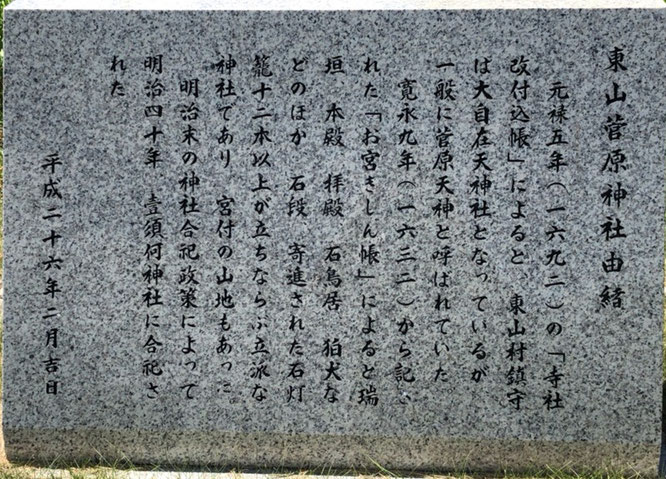 東山菅原神社由緒
元禄五年(一六九二)の「寺社
改付込帳」によると、東山村鎮守
ば大自在天神社となっているが
一般に菅原天神と呼ばれていた
寛永九年(一六三二)から記
れた「お宮きしん帳」によると瑞
垣、本殿 拝殿 石鳥居 狛犬な
どのほか 石段、寄進された石灯
籠十二本以上が立ちならぶ立派な
神社であり 宮付の山地もあった
明治末の神社合祀政策によって
明治四十年 壹須何神社に合祀さ
れた
平成二十六年二月吉日